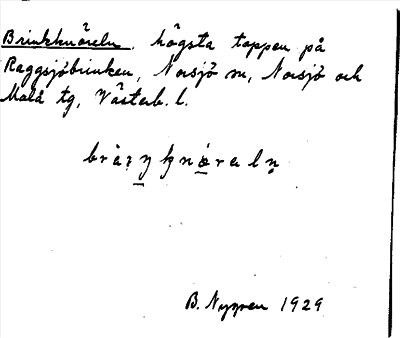 Brinkknöreln, högsta toppen på
Raggsjöbrinken, Norsjö sn, Norsjö och
Malå tg, Västerb. l.
B. Nygren 1929